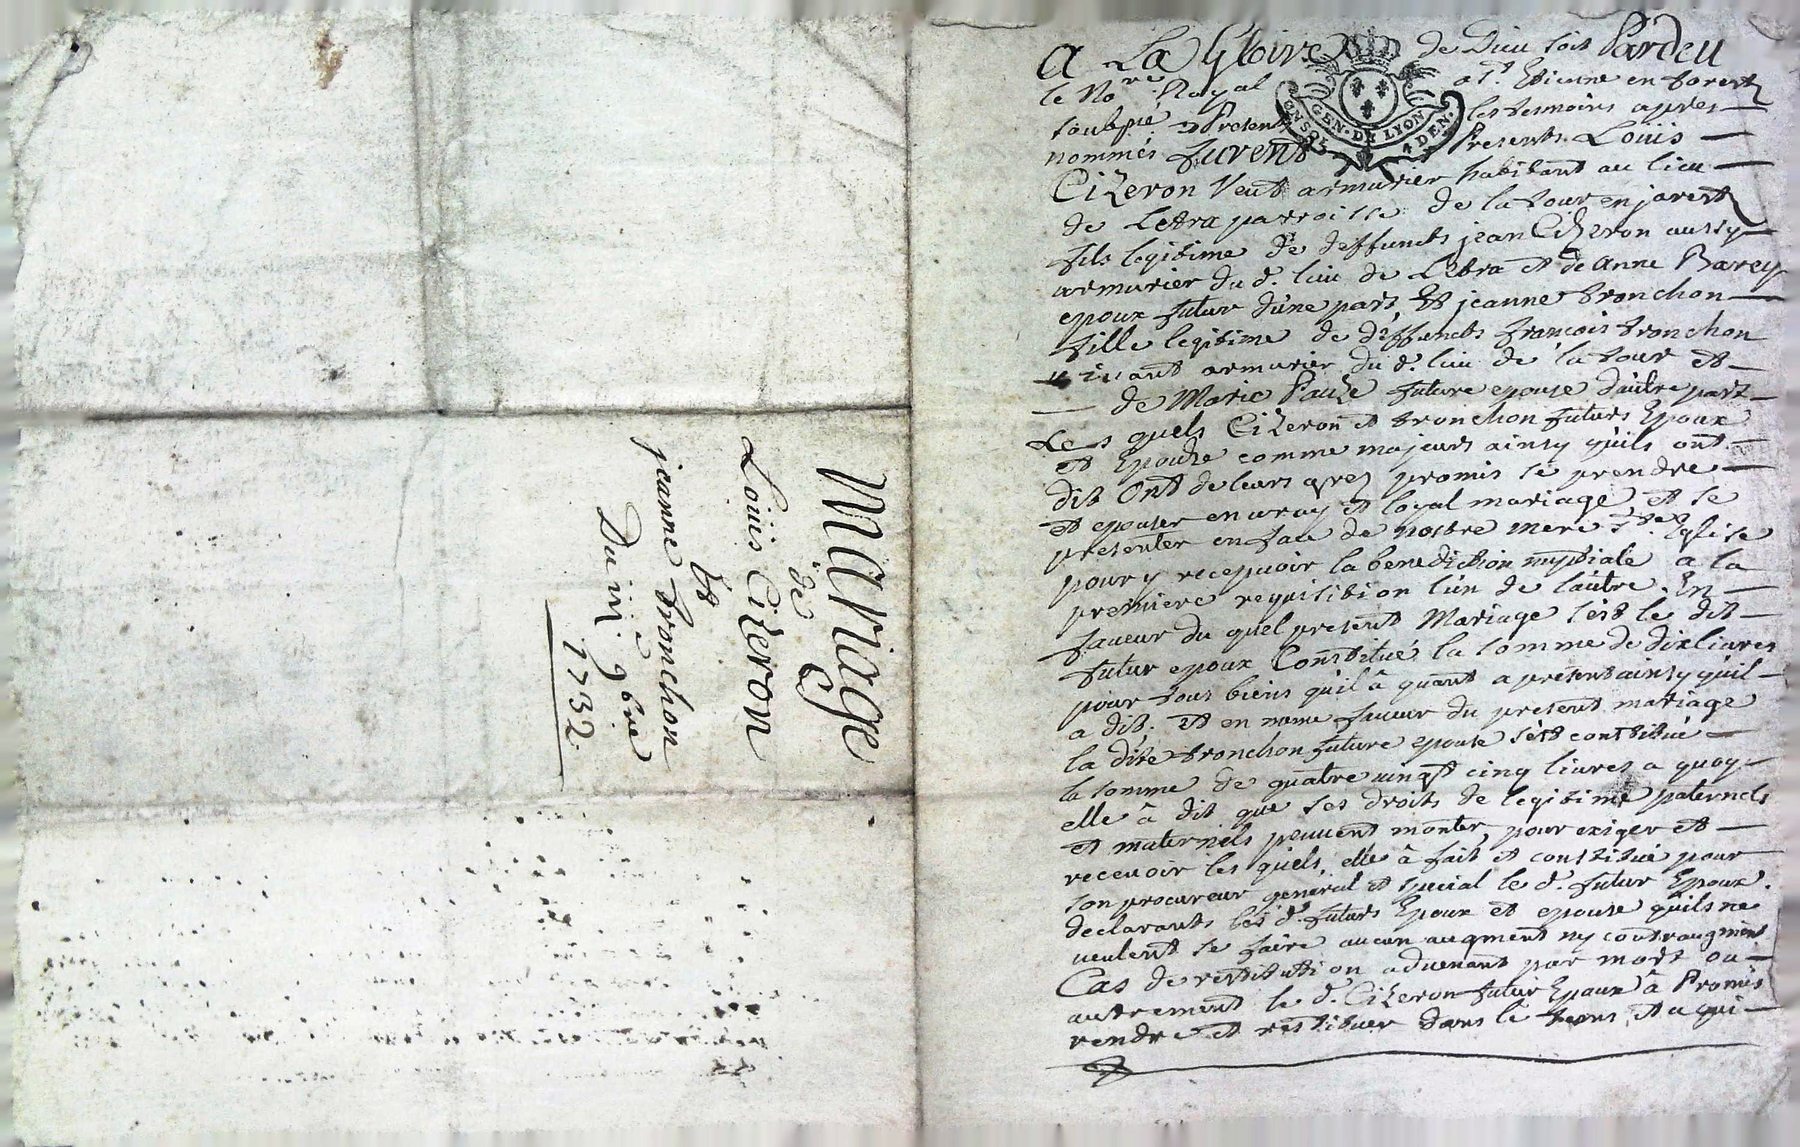 Mariage
de
Louis Cizeron
et
jeanne tronchon
Du iii. 9bre
1732.
A La Gloire de Dieu soit Pardeu
le Nore Royal a St. Etienne en forest
soubsné et Present les tesmoins apres
nommés furent Presents Louis
Cizeron Veut armurier habitant au lieu
de Letra parroisse de la tour en jarest
fils legitime de deffuncts jean Cizeron aussy
armurier du d. lieu de Letra et de anne Barey
epoux futur d'une part, Et jeanne tronchon
fille legitime de deffuncts françois tronchon
vivant armurier du d. lieu de la tour et
de Marie Pauze future epouze d'autre part
Les quels Cizeron et tronchon futurs Epoux
et Epouze comme majeurs ainsy quils ont
dit Ont de leurs grez promis se prendre
et epouser en vray et loyal mariage et se
presenter en face de nostre mere Ste Eglise
pour y recepuoir la benediction nuptiale a la
premiere requisition l'un de l'autre. En
faueur du quel present Mariage s'est le dit
futur epoux Constitué la somme de dix liures
pour tous biens qu'il â quant a present ainsy qu'il
a dit. et en mome faueur du present mariage
la dite tronchon future epouse s'est constitué
la somme de quatre uingt cinq liures a quoy
elle â dit que ses droits de legitime paternels
et maternels peuuent monter, pour exiger et
receuoir les quels, elle â fait et constitué pour
son procureur general et special le d. futur Epoux.
declarants les d. futurs Epoux et epouse quils ne
ueulent se faire aucun augment ny contraugment
Cas de restitution aduenant par mort ou
autrement le d. Cizeron futur Epoux â Promis
rendre et restituer dans le tems et a qui
GEN. DE LYON
4 DEN.